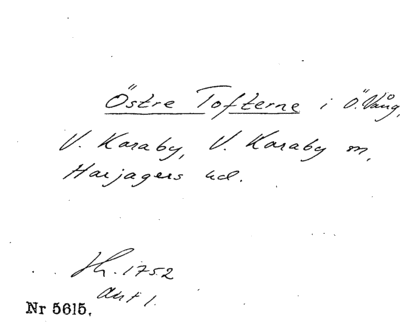 Östre Tofterne i Ö. Vång,
V. Karaby, V. Karaby m,
Harjagers hd.
Sk. 1752
akt 1.
Nr 5615.